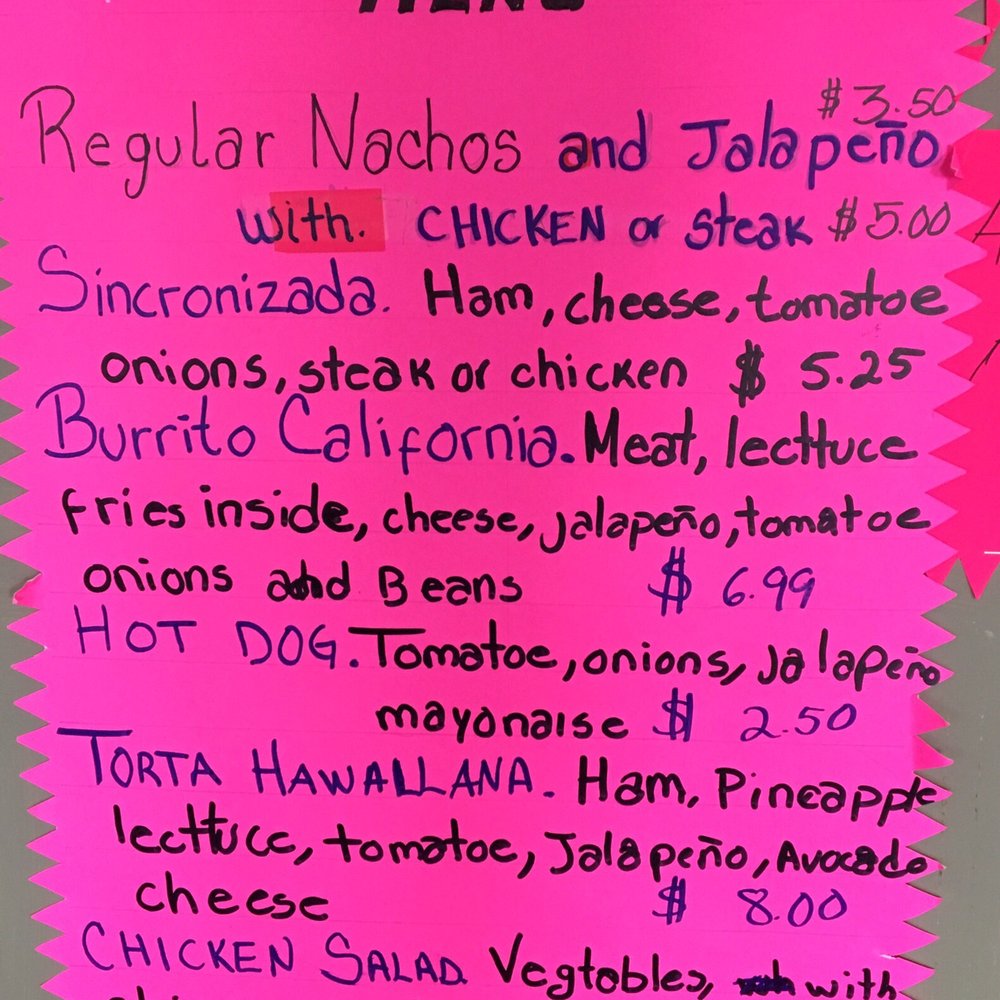 MENU
$3.50
Regular Nachos and Jalapeño
with. CHICKEN or steak $5.00
Sincronizada. Ham, cheese, tomatoe
onions, steak or chicken $ 5.25
Burrito California. Meat, lecttuce
fries inside, cheese, jalapeño, tomatoe
onions and Beans $ 6.99
HOT DOG. Tomatoe, onions, jalapeño
mayonaise $ 2.50
TORTA HAWALLANA. Ham, Pineapple
lecttuce, tomatoe, Jalapeño, Avocado
cheese $ 8.00
CHICKEN SALAD. Vegtobles, with